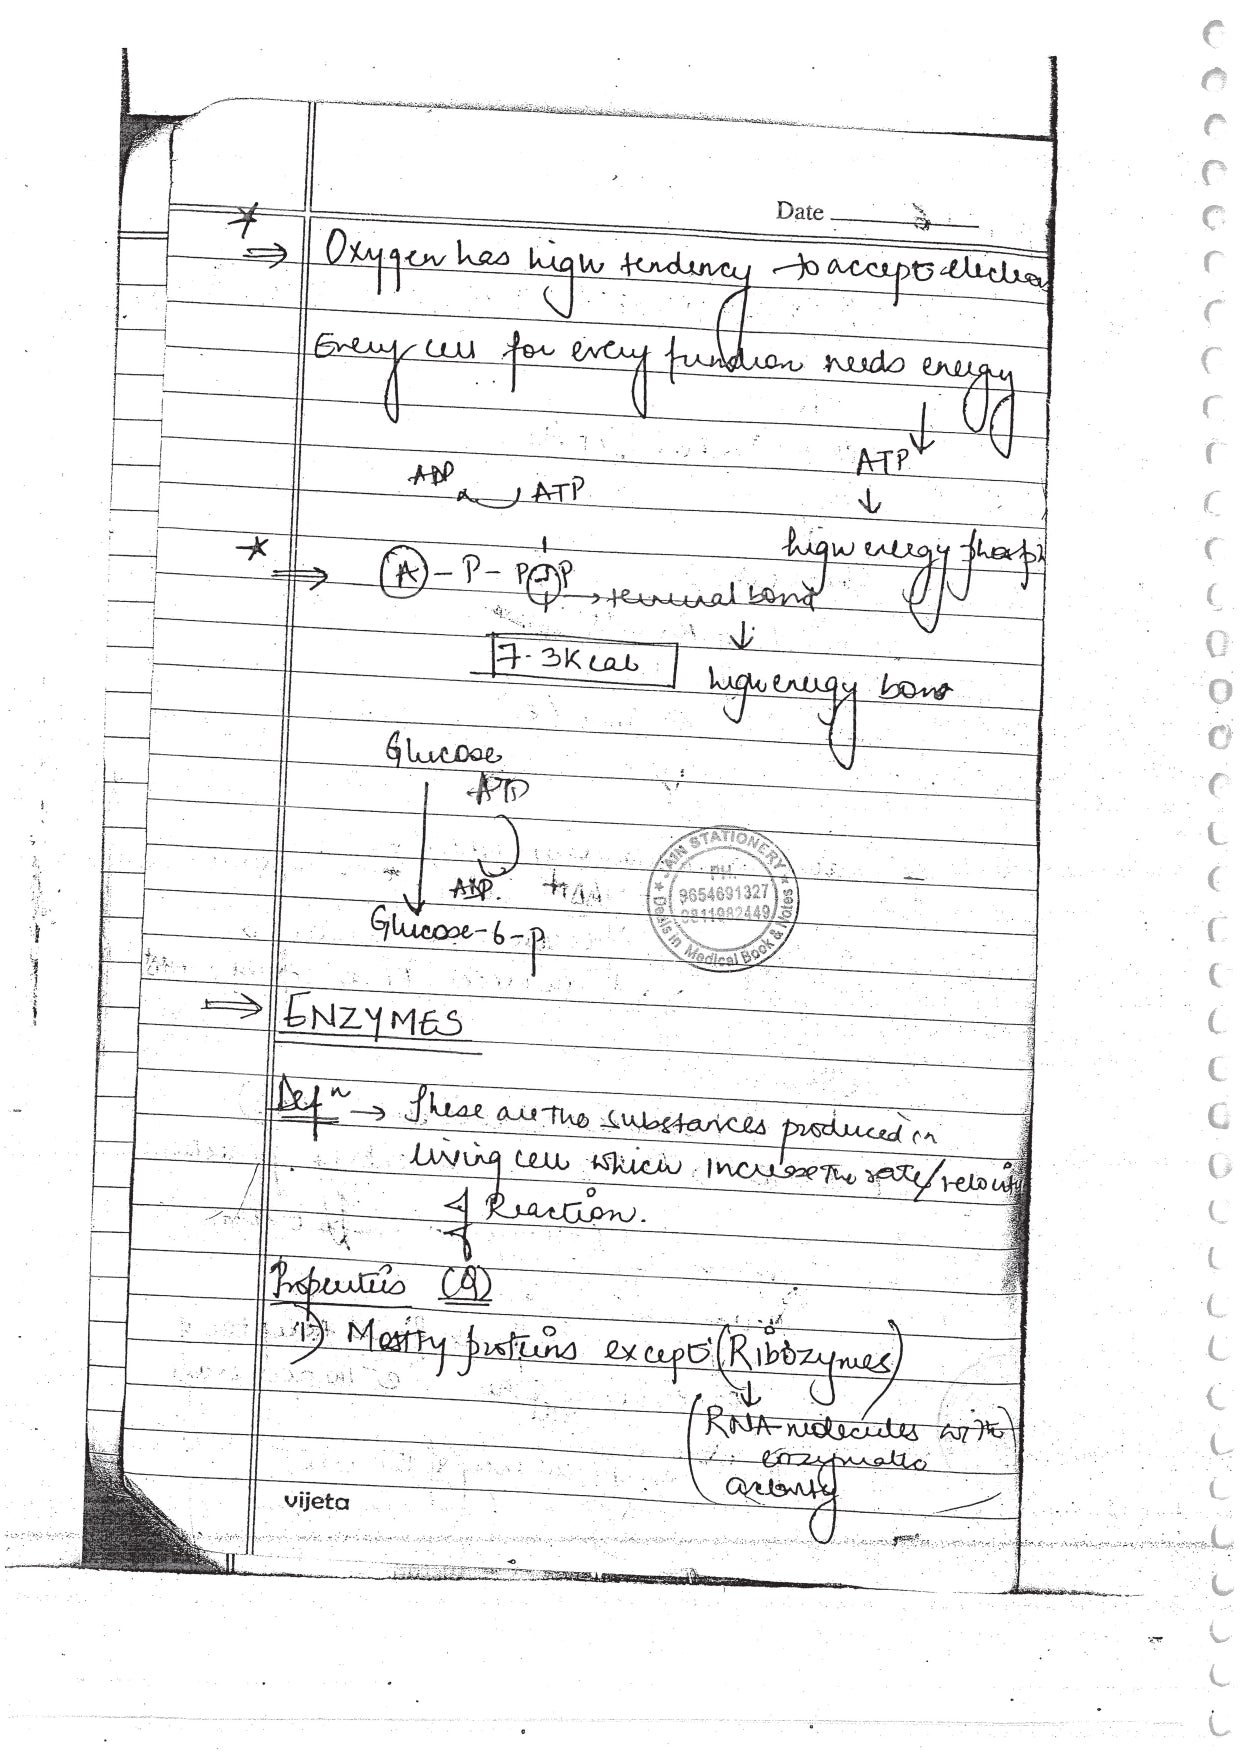 Date
⇒ Oxygen has high tendency to accept electron
Every cell for every function needs energy
↓
ATP
ADP ATP
↓
high energy phosph
⇒ A - P - P ~ P → terminal bond
↓
7.3 Kcal
high energy bond
Glucose
ATP
ADP
Glucose-6-p
AIN STATIONERY
PH
9654691327
9811982449
Deals in Medical Book & Notes
⇒ ENZYMES
Defⁿ → These are the substances produced in
living cell which increase the rate/velocity
of Reaction.
Properties (Q)
1) Mostly proteins except (Ribozymes)
↓
(RNA molecules with
enzymatic
activity
vijeta